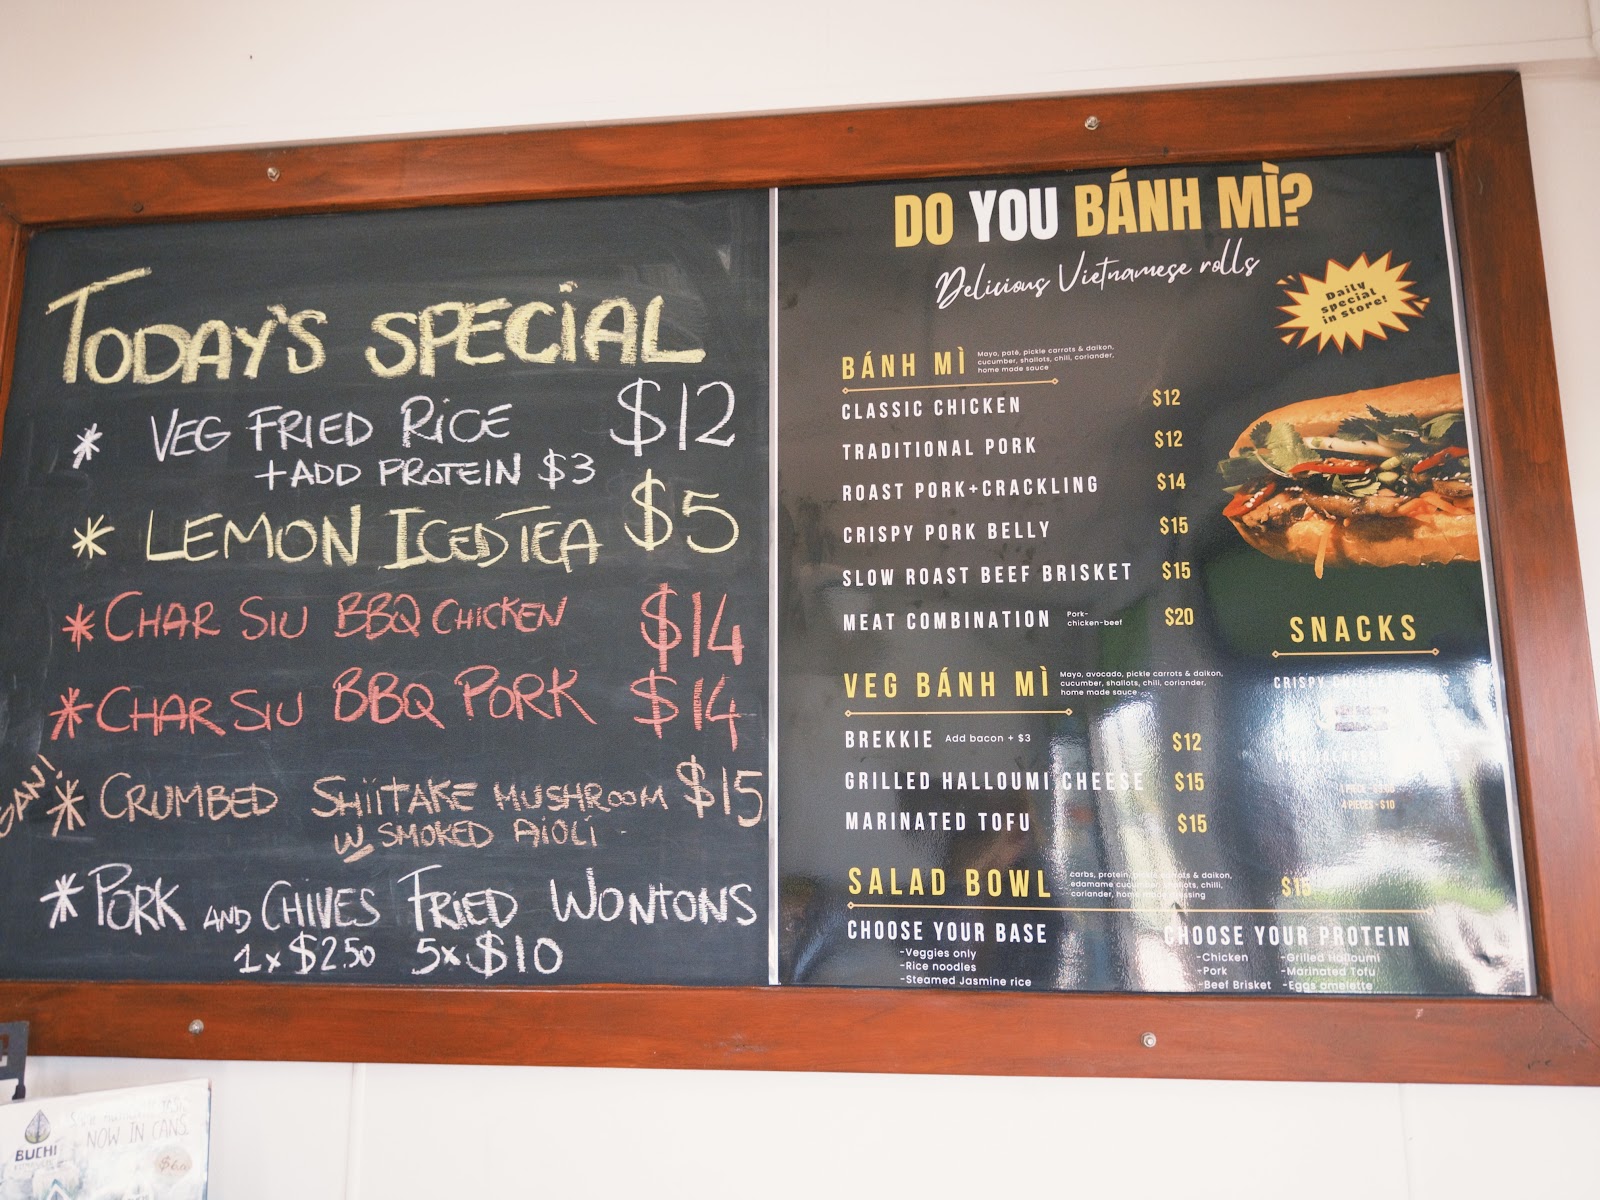 TODAY'S SPECIAL
* VEG FRIED RICE $12
+ ADD PROTEIN $3
* LEMON ICED TEA $5
* CHAR SIU BBQ CHICKEN $14
* CHAR SIU BBQ PORK $14
* CRUMBED SHIITAKE MUSHROOM $15
W SMOKED AIOLI
* PORK AND CHIVES FRIED WONTONS
1x $2.50 5x $10
DO YOU BÁNH MÌ?
Delicious Vietnamese rolls
Daily
special
in store!
BÁNH MÌ
Mayo, paté, pickle carrots & daikon,
cucumber, shallots, chili, coriander,
home made sauce
CLASSIC CHICKEN $12
TRADITIONAL PORK $12
ROAST PORK+CRACKLING $14
CRISPY PORK BELLY $15
SLOW ROAST BEEF BRISKET $15
MEAT COMBINATION Pork-
chicken-beef $20
VEG BÁNH MÌ
Mayo, avocado, pickle carrots & daikon,
cucumber, shallots, chili, coriander,
home made sauce
BREKKIE Add bacon + $3 $12
GRILLED HALLOUMI CHEESE $15
MARINATED TOFU $15
SALAD BOWL $15
carbs, protein, pickle carrots & daikon,
edamame cucumber shallots, chili,
coriander, home made dressing
CHOOSE YOUR BASE
-Veggies only
-Rice noodles
-Steamed Jasmine rice
CHOOSE YOUR PROTEIN
-Chicken -Grilled Halloumi
-Pork -Marinated Tofu
-Beef Brisket -Eggs omelette
SNACKS
CRISPY
4 PIECES - $10
BUCHI
NOW IN CANS